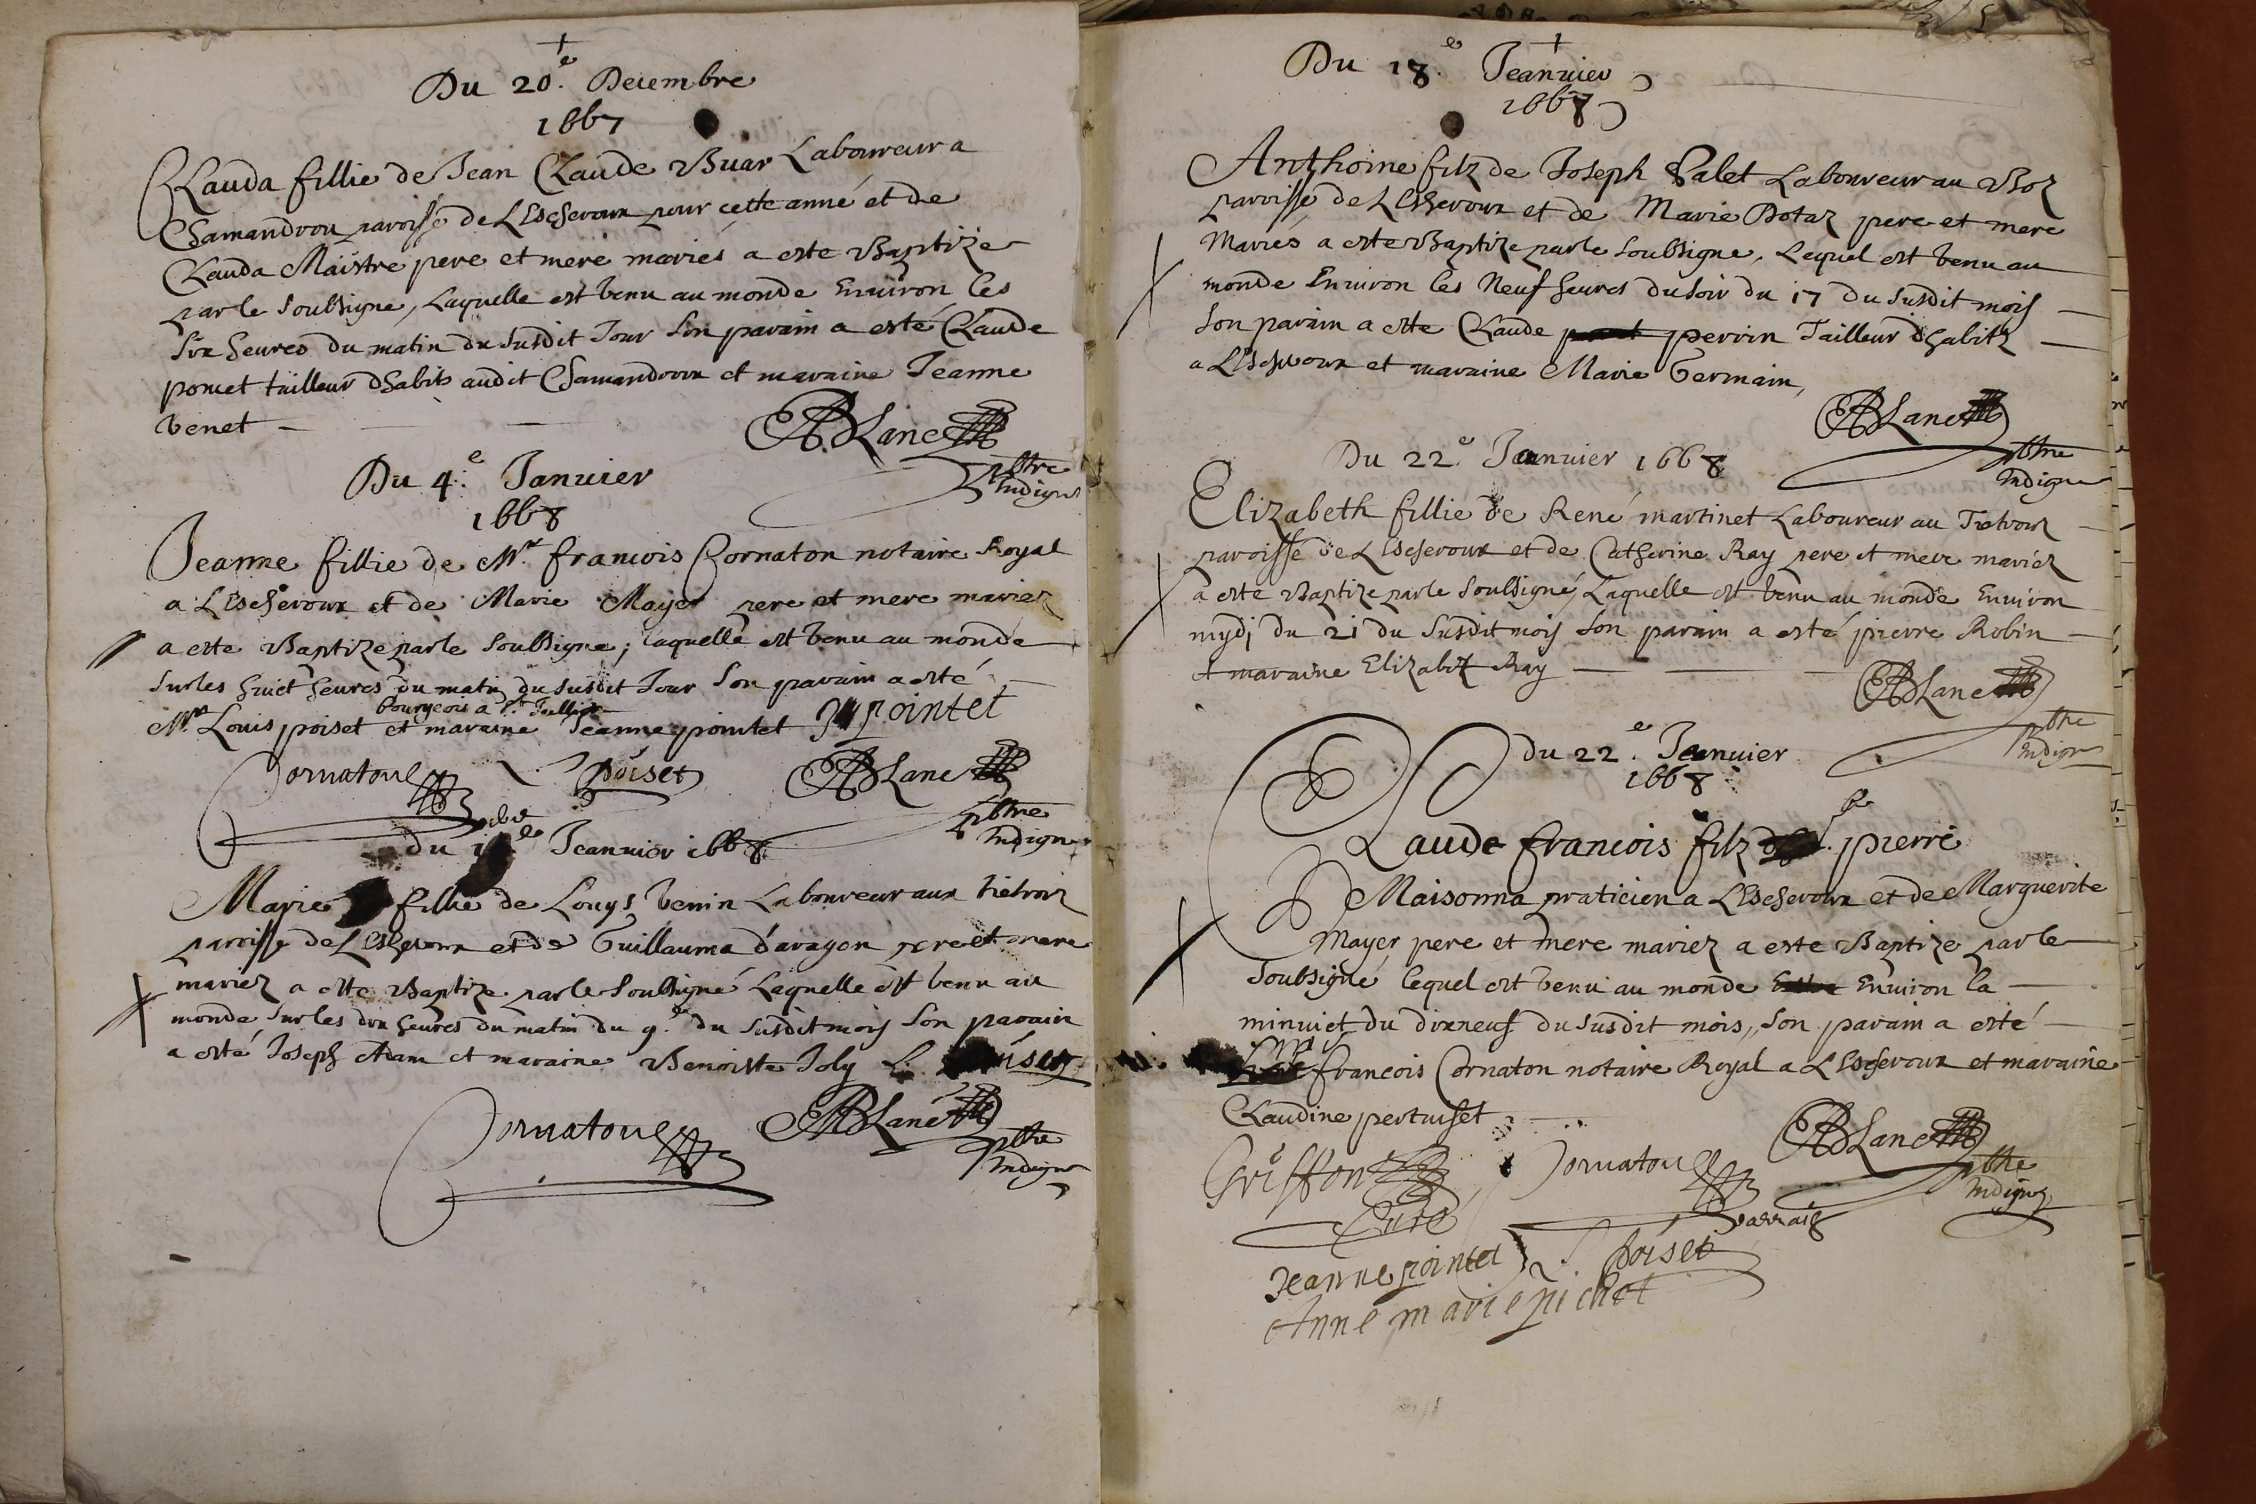 Du 20.e Decembre
1667
Clauda fillie de Jean Claude Buar Laboureur a
Chamandrou paroisse de LEscheroux pour cette anné et de
Clauda Maistre pere et mere mariés a este Baptize
par le soubsigne, Laquelle est venu au monde Enuiron les
six heures du matin du susdit Jour son parain a esté Claude
poncet tailleur dhabits audit Chamandroux et maraine Jeanne
venet
ABLanc
pbtre
Indigne
Du 4.e Januier
1668
Jeanne fillie de Mre francois Cornaton notaire Royal
a LEscheroux et de Marie Mayer pere et mere mariez
a este Baptize par le soubsigne, laquelle est venu au monde
sur les huict heures du matin du susdit Jour son parain a esté
bourgeois a St Jullien
Mre Louis poiset et maraine Jeanne pointet J pointet
Cornaton L. Poiset ABLanc
pbtre
Indigne
du Jeanuier 1668
Marie fillie de Louys venin Laboureur aux
paroisse de LEscheroux et de Guillauma daragon pere et mere
mariez a este Baptize par le soubsigné Laquelle est venu au
monde sur les dix heures du matin du 9.e du susdit mois son parain
a esté Joseph Adam et maraine Benoiste Joly L.
Cornaton ABLanc
pbtre
Indigne
Du 18.e Jeanuier
1668
Anthoine filz de Joseph Palet Laboureur au Boz
paroisse de LEscheroux et de Marie Botaz pere et mere
Mariés a este Baptize par le soubsigne, Lequel est venu au
monde Enuiron les Neuf heures du soir du 17 du susdit mois
son parain a este Claude perrin Tailleur dhabitz
a LEscheroux et maraine Marie Germain,
ABLanc
pbtre
Indigne
Du 22.e Januier 1668
Elizabeth fillie de René martinet Laboureur au
paroisse de LEscheroux et de Catherine Ray pere et mere mariéz
a este Baptize par le soubsigné, Laquelle est venu au monde Enuiron
mydj du 21 du susdit mois son parain a esté pierre Robin
et maraine Elizabet Ray
ABLanc
pbtre
Indigne
Du 22.e Jeanuier
1668
Claude francois filz de Sr pierre
Maisonna praticien a LEscheroux et de Marguerite
Mayer pere et mere mariez a este Baptize par le
soubsigné lequel est venu au monde Enuiron la
minuict du dixneuf du susdit mois, son parain a esté
Mre francois Cornaton notaire Royal a LEscheroux et maraine
Claudine pertuiset
Griffon Cornaton ABLanc
Curé parrain pbtre
Indigne
Jeanne pointet L. Poiset
Anne marie pichot